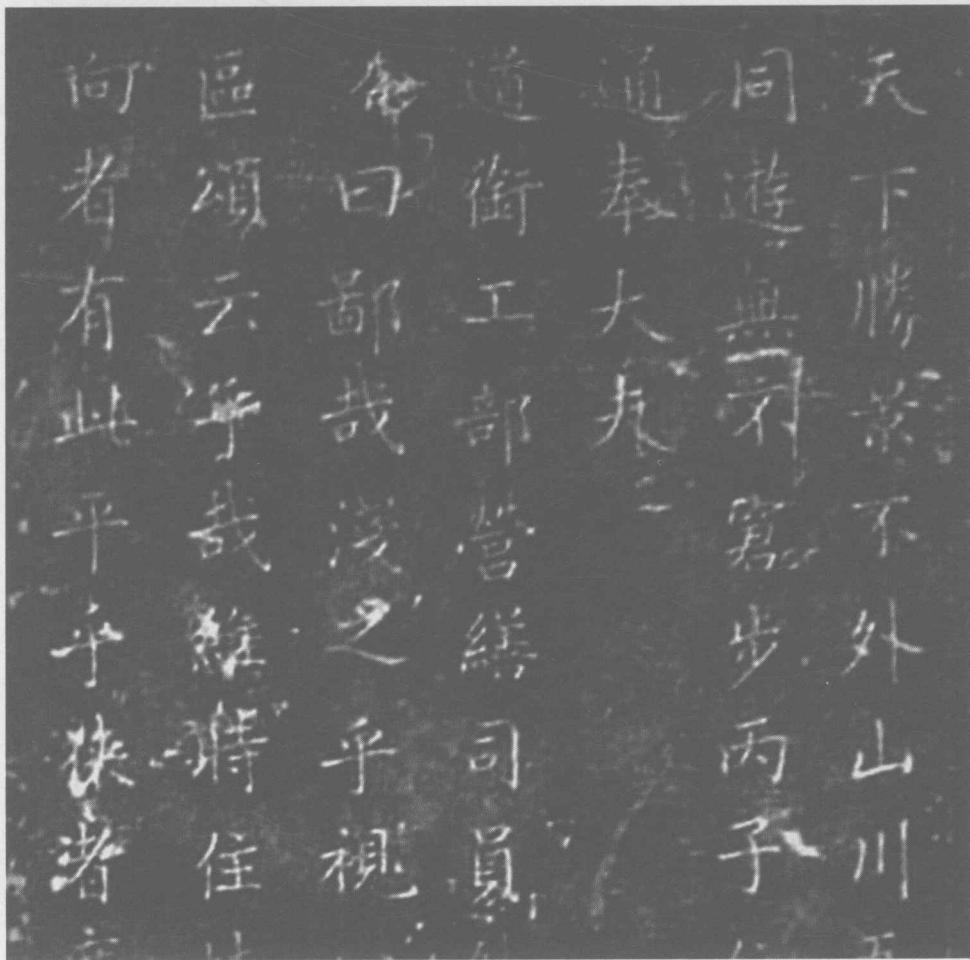 天下勝景不外山川
同遊無不窮步丙子
通奉大夫
道銜工部營繕司員
命曰鄙哉淺之乎視
區頌云乎哉維時住
向者有此平乎狹者